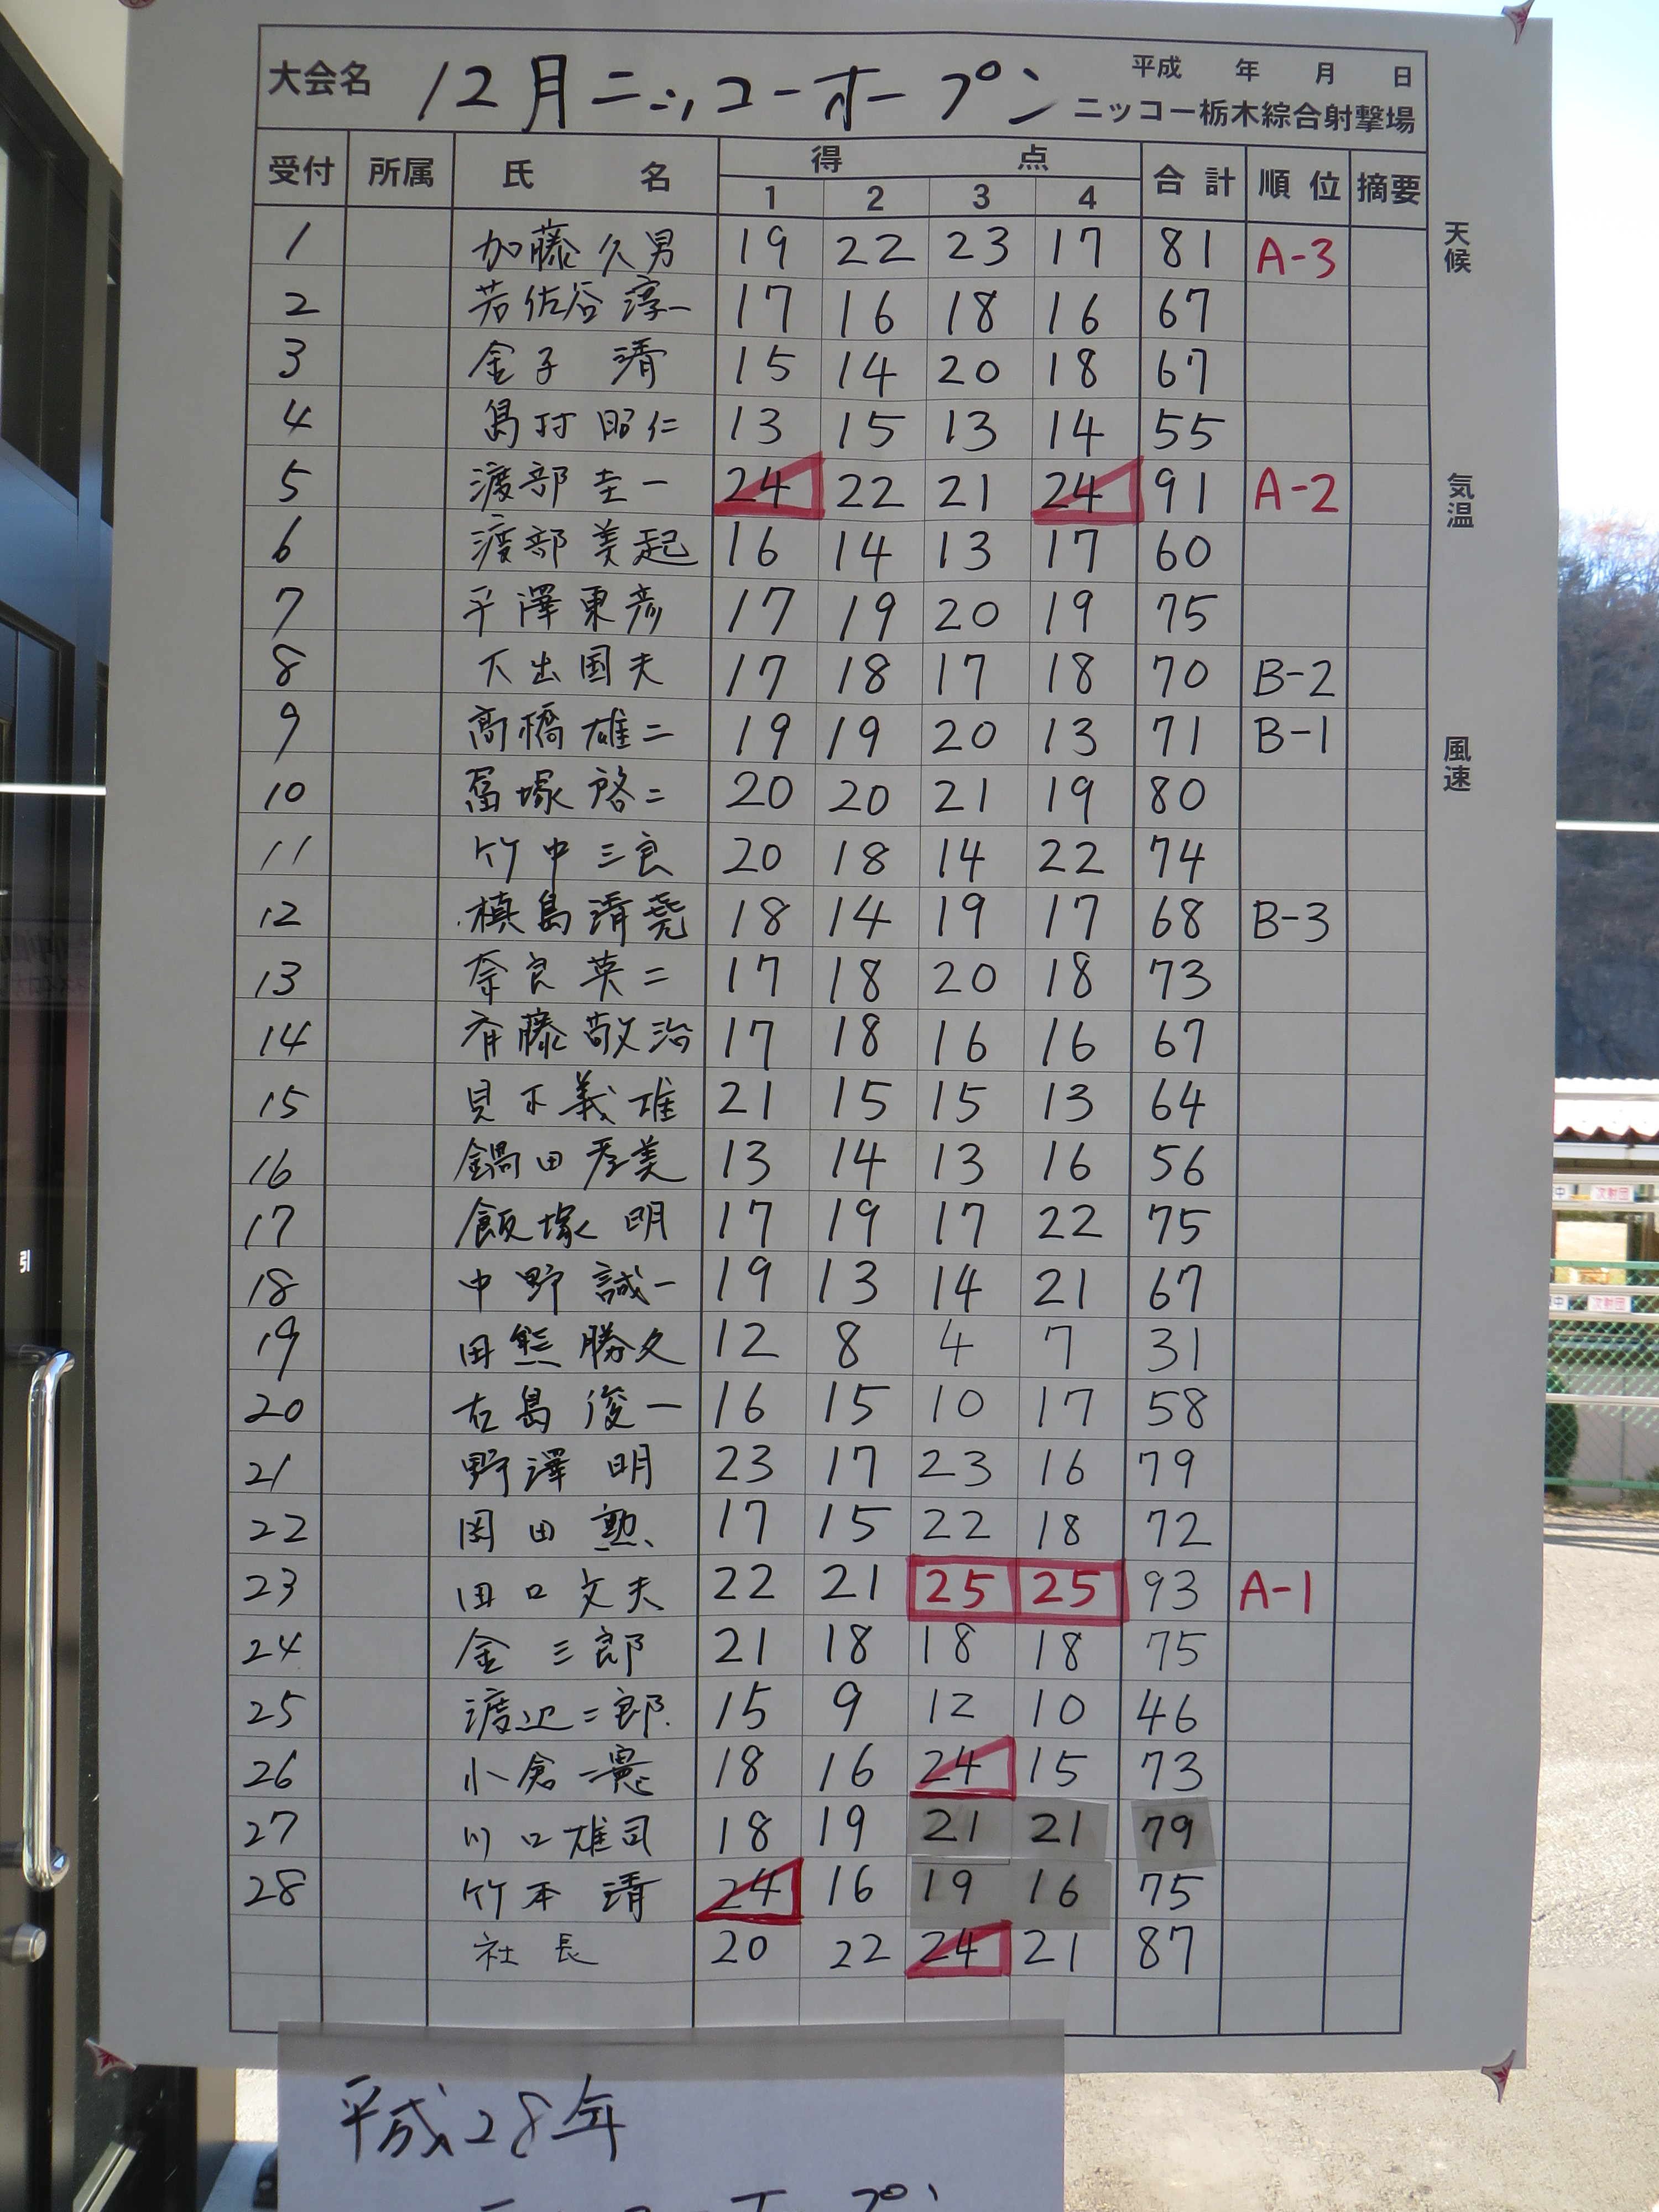 大会名 12月ニッコーオープン 平成 年 月 日
ニッコー栃木綜合射撃場
受付 所属 氏 名 得 点 合計 順位 摘要
1 2 3 4
1 加藤久男 19 22 23 17 81 A-3
2 若佐谷淳一 17 16 18 16 67
3 金子 清 15 14 20 18 67
4 島村昭仁 13 15 13 14 55
5 渡部圭一 24 22 21 24 91 A-2
6 渡部美起 16 14 13 17 60
7 平澤東彦 17 19 20 19 75
8 下出国夫 17 18 17 18 70 B-2
9 高橋雄二 19 19 20 13 71 B-1
10 冨塚啓二 20 20 21 19 80
11 竹中三良 20 18 14 22 74
12 槙島清尭 18 14 19 17 68 B-3
13 奈良英二 17 18 20 18 73
14 斉藤敬治 17 18 16 16 67
15 貝木義雄 21 15 15 13 64
16 鍋田孝美 13 14 13 16 56
17 飯塚 明 17 19 17 22 75
18 中野誠一 19 13 14 21 67
19 田熊勝久 12 8 4 7 31
20 右島俊一 16 15 10 17 58
21 野澤 明 23 17 23 16 79
22 岡田 勲 17 15 22 18 72
23 田口文夫 22 21 25 25 93 A-1
24 金 三郎 21 18 18 18 75
25 渡辺二郎 15 9 12 10 46
26 小倉 憲 18 16 24 15 73
27 川口雄司 18 19 21 21 79
28 竹本 清 24 16 19 16 75
社長 20 22 24 21 87
天候
気温
風速
平成28年
引
次射団
次射団